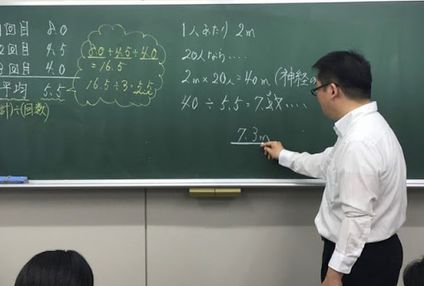 1回目 8.0
2回目 4.5
3回目 4.0
平均 5.5
計)÷(回数)
8.0+4.5+4.0
=16.5
16.5÷3=5.5
1人あたり 2m
20人なら....
2m×20人=40m (神経の
40÷5.5=7.3....
7.3m